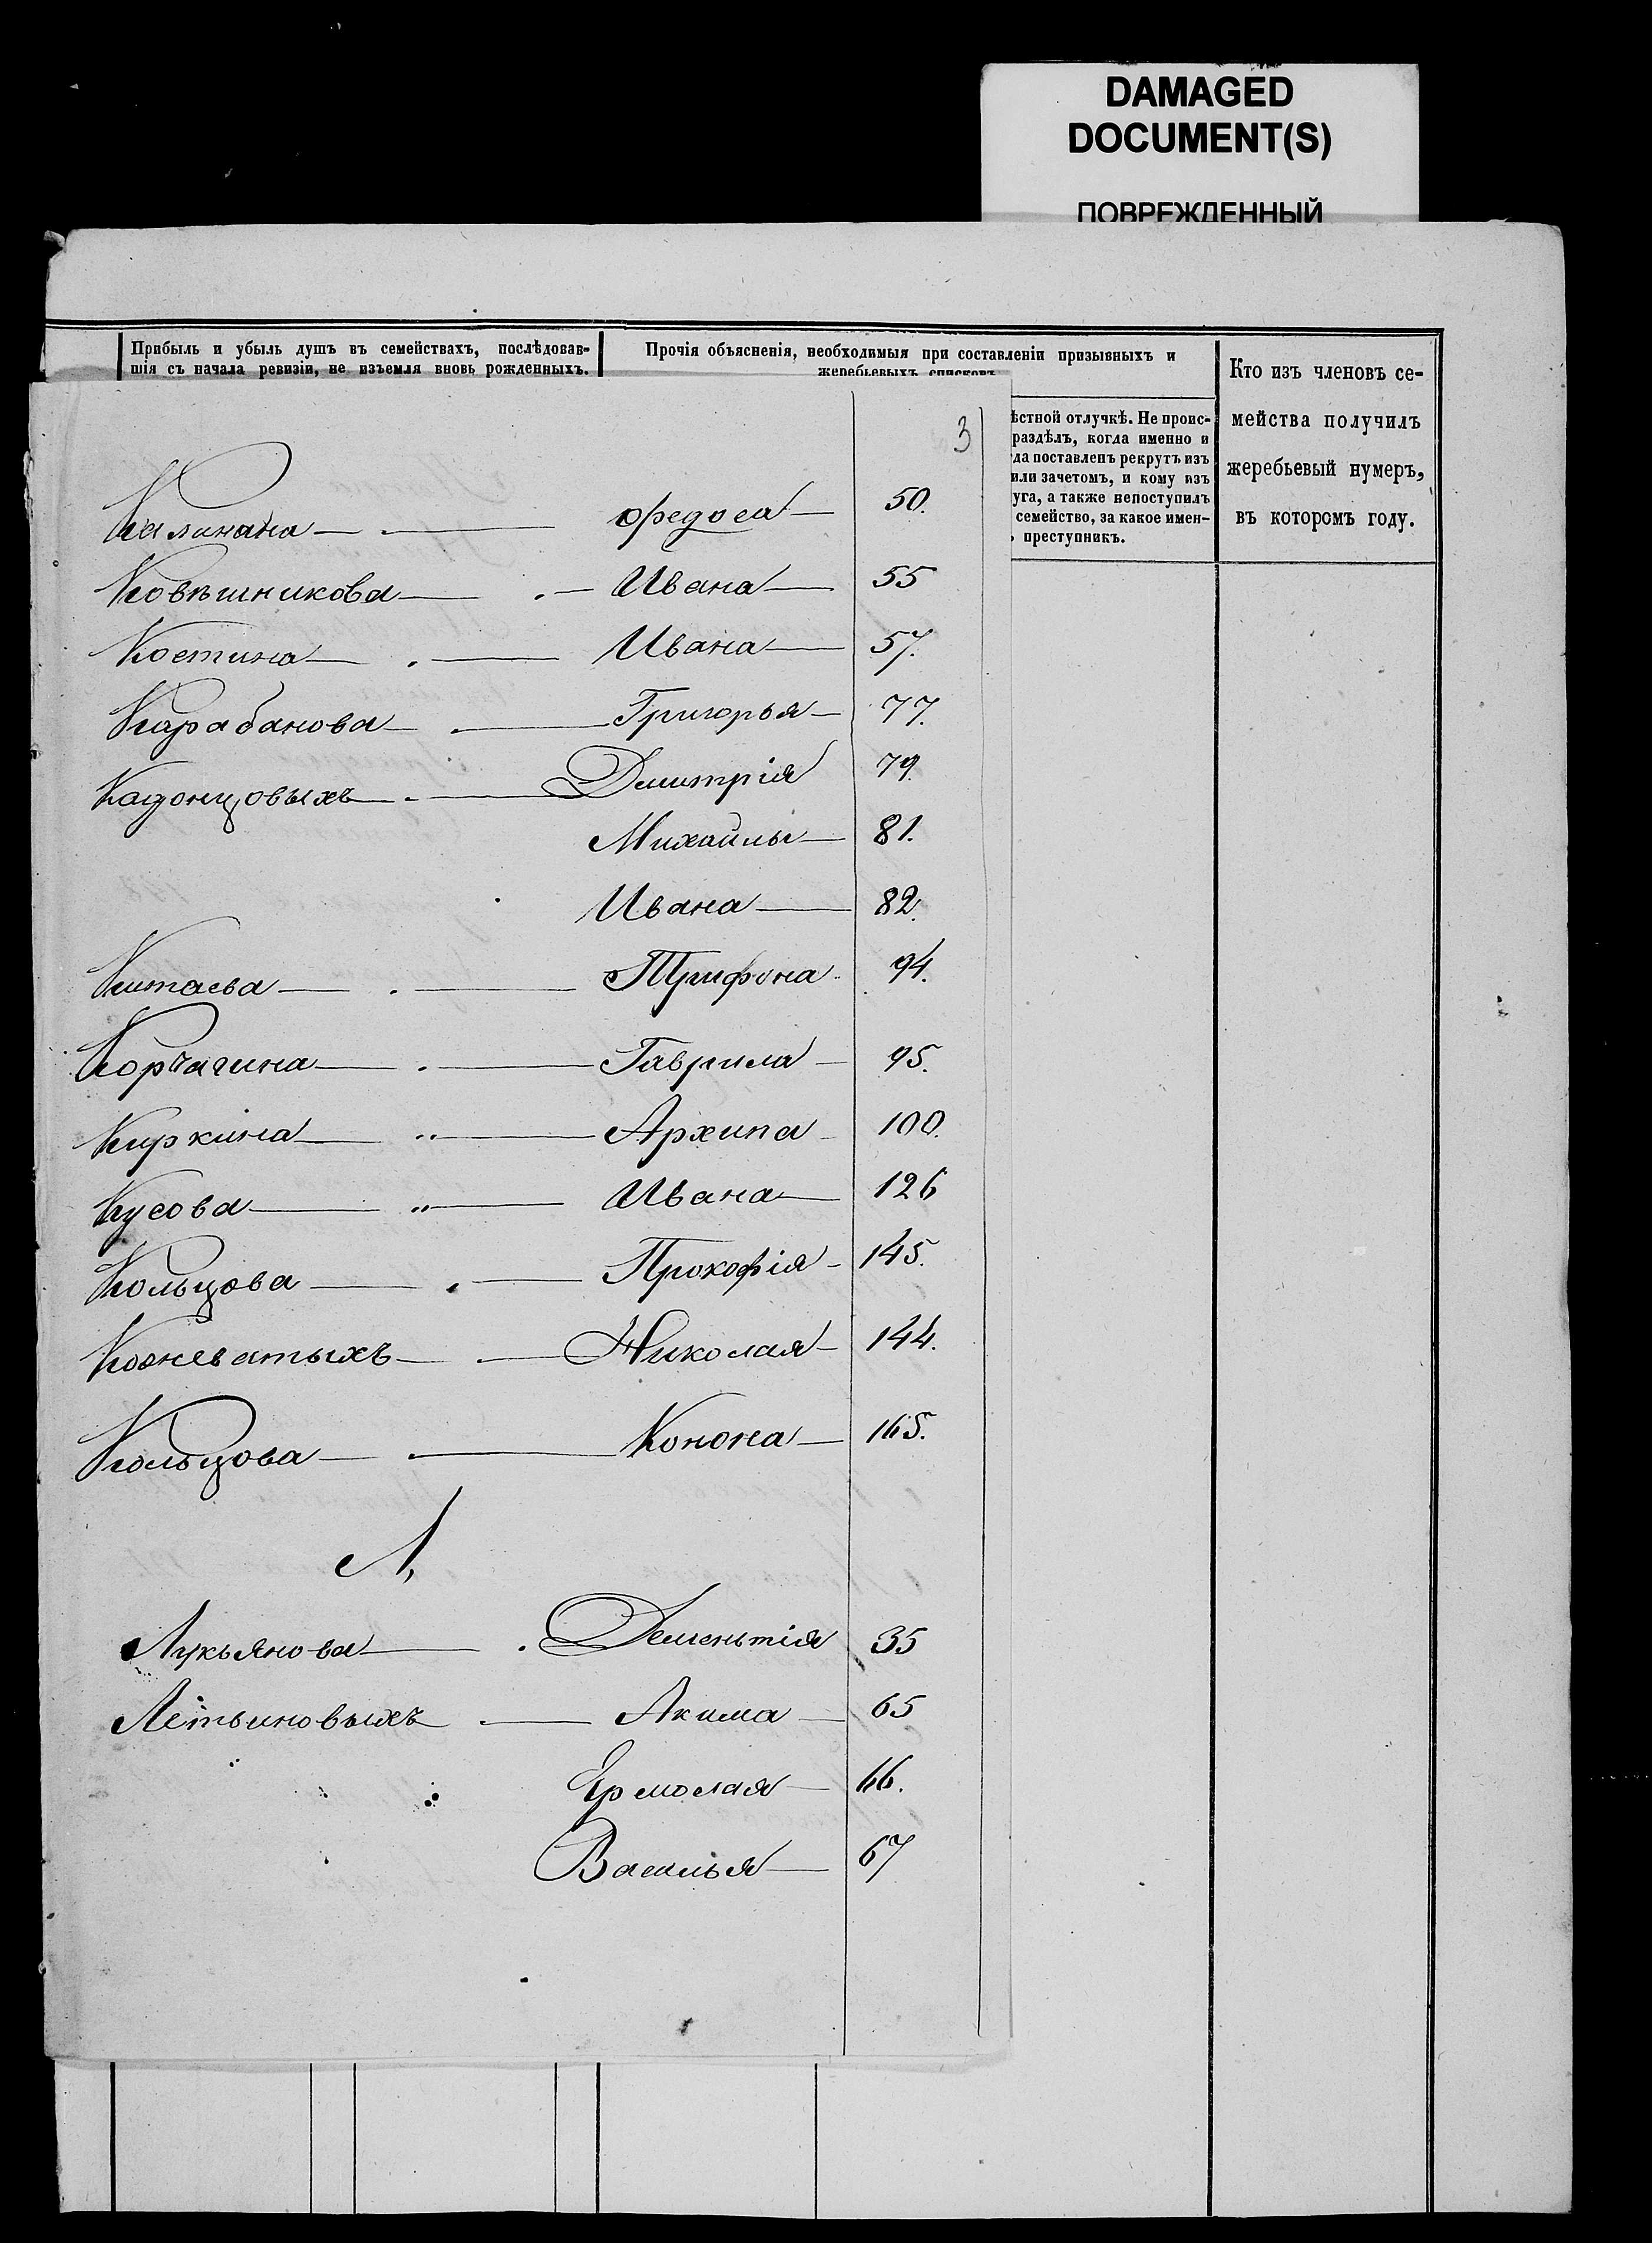 DAMAGED
DOCUMENT(S)
ПОВРЕЖДЕННЫЙ
Прибыль и убыль душъ въ семействахъ, послѣдовав-
шія съ начала ревизіи, не изъемля вновь рожденныхъ.
Прочія объясненія, необходимыя при составленіи призывныхъ и
жеребьевыхъ списковъ
Кто изъ членовъ се-
мейства получилъ
жеребьевый нумеръ,
въ которомъ году.
ѣстной отлучкѣ. Не проис-
раздѣлъ, когда именно и
да поставленъ рекрутъ изъ
или зачетомъ, и кому изъ
уга, а также непоступилъ
семейство, за какое имен-
ъ преступникъ.
3
Калинина — Федоса — 50.
Ковѣшникова — Ивана — 55
Костина — Ивана — 57.
Карабанова — Григорья — 77.
Кадонцовыхъ — Дмитрія 79.
Михайлы — 81.
Ивана — 82.
Китаева — Трифона 94.
Корчагина — Гаврила — 95.
Киркина — Архипа — 100.
Кусова — Ивана — 126
Кольцова — Прокофія — 145.
Кожеватыхъ — Николая — 144.
Кольцова — Конона — 165.
Л,
Лукьянова — Дементія 35
Летьиновыхъ — Акима — 65
Ермолая — 66.
Василья — 67